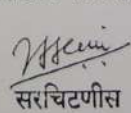 सरचिटणीस